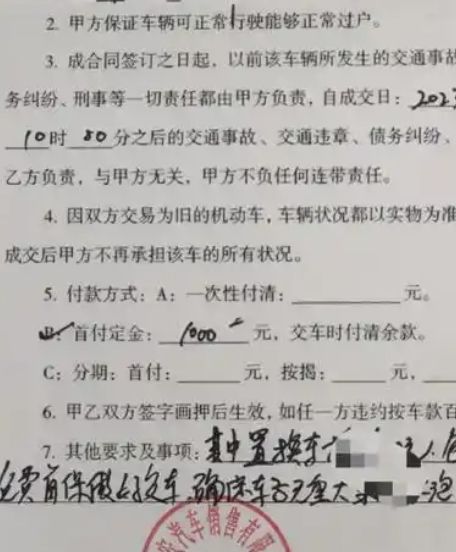 2. 甲方保证车辆可正常行驶能够正常过户。
3. 成合同签订之日起，以前该车辆所发生的交通事故
务纠纷、刑事等一切责任都由甲方负责，自成交日：2023
10时 80 分之后的交通事故、交通违章、债务纠纷、
乙方负责，与甲方无关，甲方不负任何连带责任。
4. 因双方交易为旧的机动车，车辆状况都以实物为准
成交后甲方不再承担该车的所有状况。
5. 付款方式：A：一次性付清：元。
B：首付定金：1000 元，交车时付清余款。
C：分期：首付：元，按揭：元，
6. 甲乙双方签字画押后生效，如任一方违约按车款百
7. 其他要求及事项：其中置换车
保 交车 确保车 无重大 泡
汽车销售有限